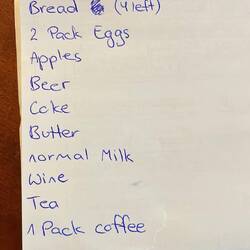 Bread (4 left)
2 Pack Eggs
Apples
Beer
Coke
Butter
normal Milk
Wine
Tea
1 Pack coffee